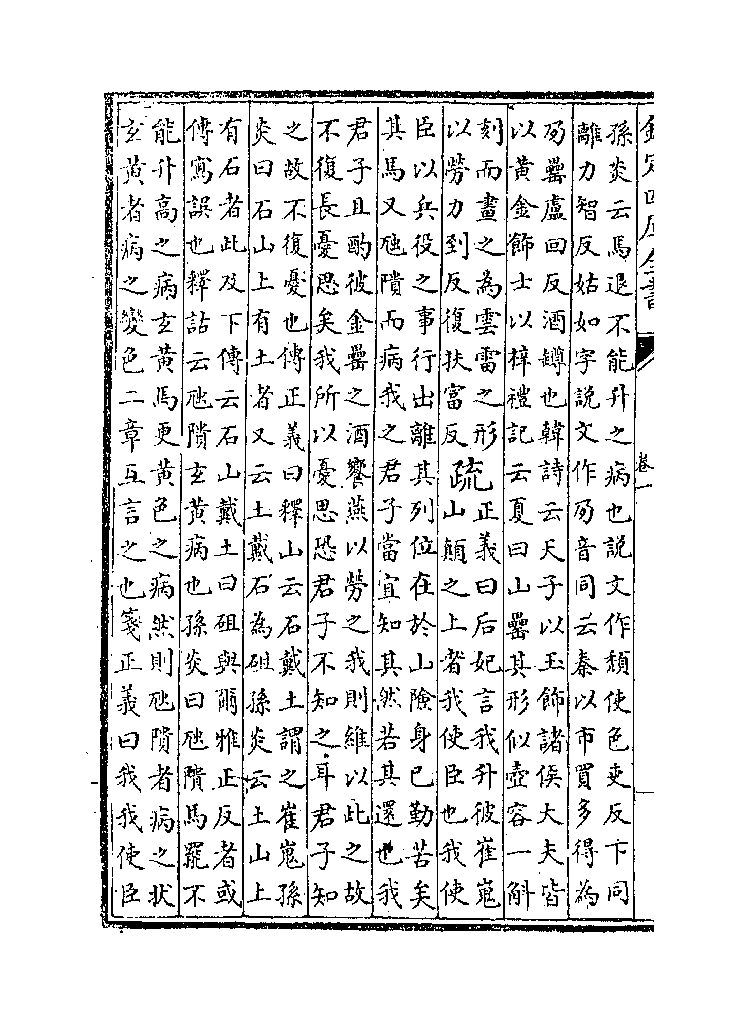 欽定四庫全書
卷一
孫炎云馬退不能升之病也說文作頽使色吏反下同
離力智反姑如字說文作夃音同云秦以市買多得為
夃罍盧回反酒罇也韓詩云天子以玉飾諸侯大夫皆
以黃金飾士以梓禮記云夏曰山罍其形似壺容一斛
刻而畫之為雲雷之形
以勞力到反復扶富反
疏
正義曰后妃言我升彼崔嵬
山巔之上者我使臣也我使
臣以兵役之事行出離其列位在於山險身已勤苦矣
其馬又虺隤而病我之君子當宜知其然若其還也我
君子且酌彼金罍之酒饗燕以勞之我則維以此之故
不復長憂思矣我所以憂思恐君子不知之耳君子知
之故不復憂也傳正義曰釋山云石戴土謂之崔嵬孫
炎曰石山上有土者又云土戴石為砠孫炎云土山上
有石者此及下傳云石山戴土曰砠與爾雅正反者或
傳寫誤也釋詁云虺隤玄黃病也孫炎曰虺隤馬罷不
能升高之病玄黃馬更黃色之病然則虺隤者病之狀
玄黃者病之變色二章互言之也箋正義曰我我使臣